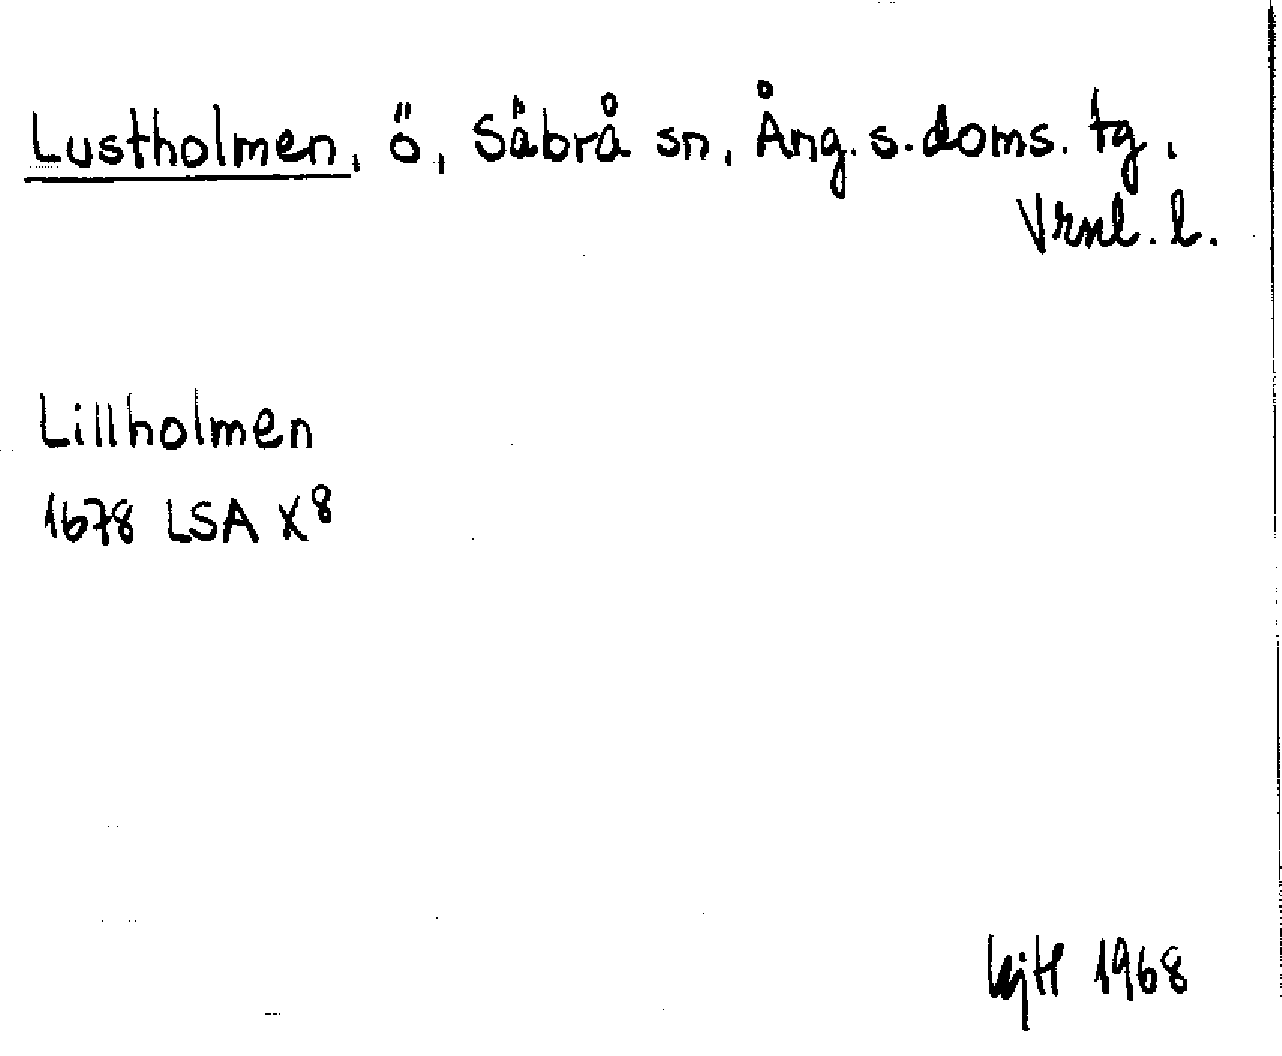 Lustholmen, ö, Säbrå sn, Ång. s. doms. tg,
Vrnl. l.
Lillholmen
1678 LSA X8
1968